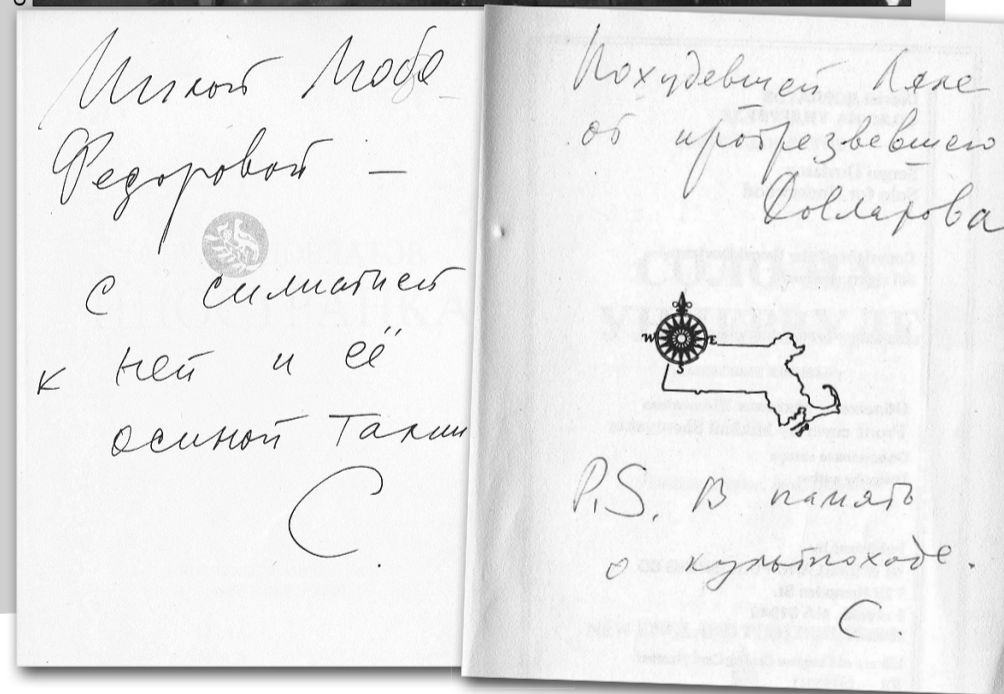 Милой Любе
Федоровой —
ДОВЛАТОВ
ИНОСТРАНКА
с симпатией
к ней и её
осиной талии
С.
Похудевшей Ляле
от протрезвевшего
Довлатова
W E
S
P.S. В память
о культпоходе.
С.